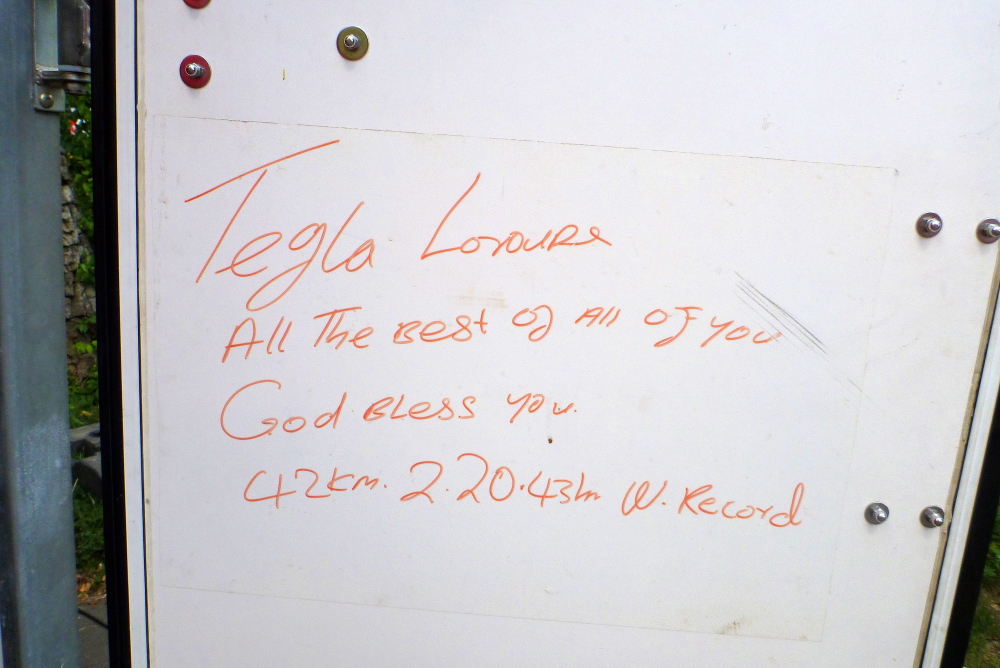 Tegla Loroupe
All The Best of All of you
God Bless you.
42km. 2.20.43hr W. Record